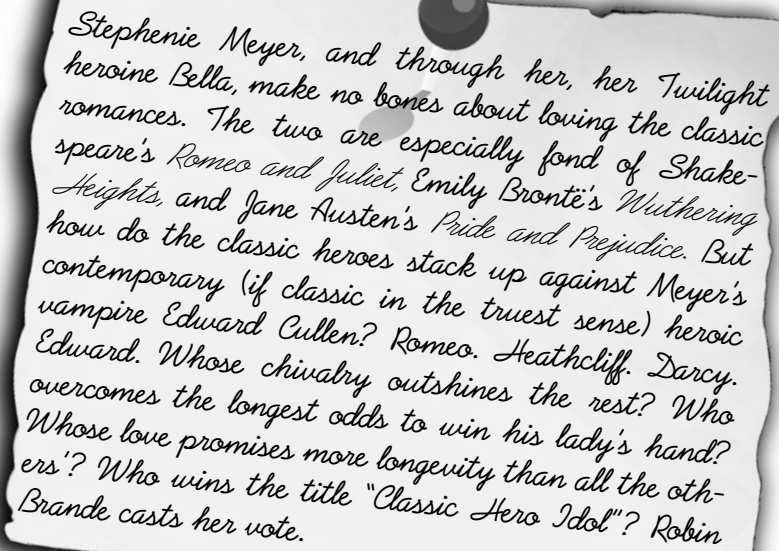 Stephenie Meyer, and through her, her Twilight
heroine Bella, make no bones about loving the classic
romances. The two are especially fond of Shake-
speare's Romeo and Juliet, Emily Brontë's Wuthering
Heights, and Jane Austen's Pride and Prejudice. But
how do the classic heroes stack up against Meyer's
contemporary (if classic in the truest sense) heroic
vampire Edward Cullen? Romeo. Heathcliff. Darcy.
Edward. Whose chivalry outshines the rest? Who
overcomes the longest odds to win his lady's hand?
Whose love promises more longevity than all the oth-
ers'? Who wins the title "Classic Hero Idol"? Robin
Brande casts her vote.